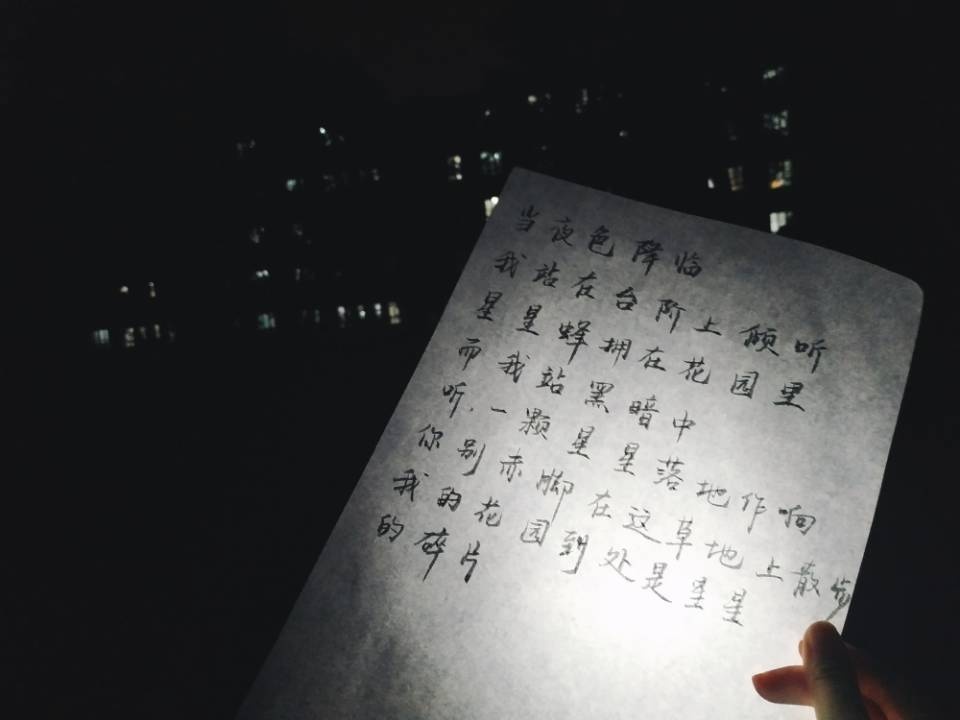 当夜色降临
我站在台阶上倾听
星星蜂拥在花园里
而我站黑暗中
听.一颗星星落地作响
你别赤脚在这草地上散步
我的花园到处是星星
的碎片